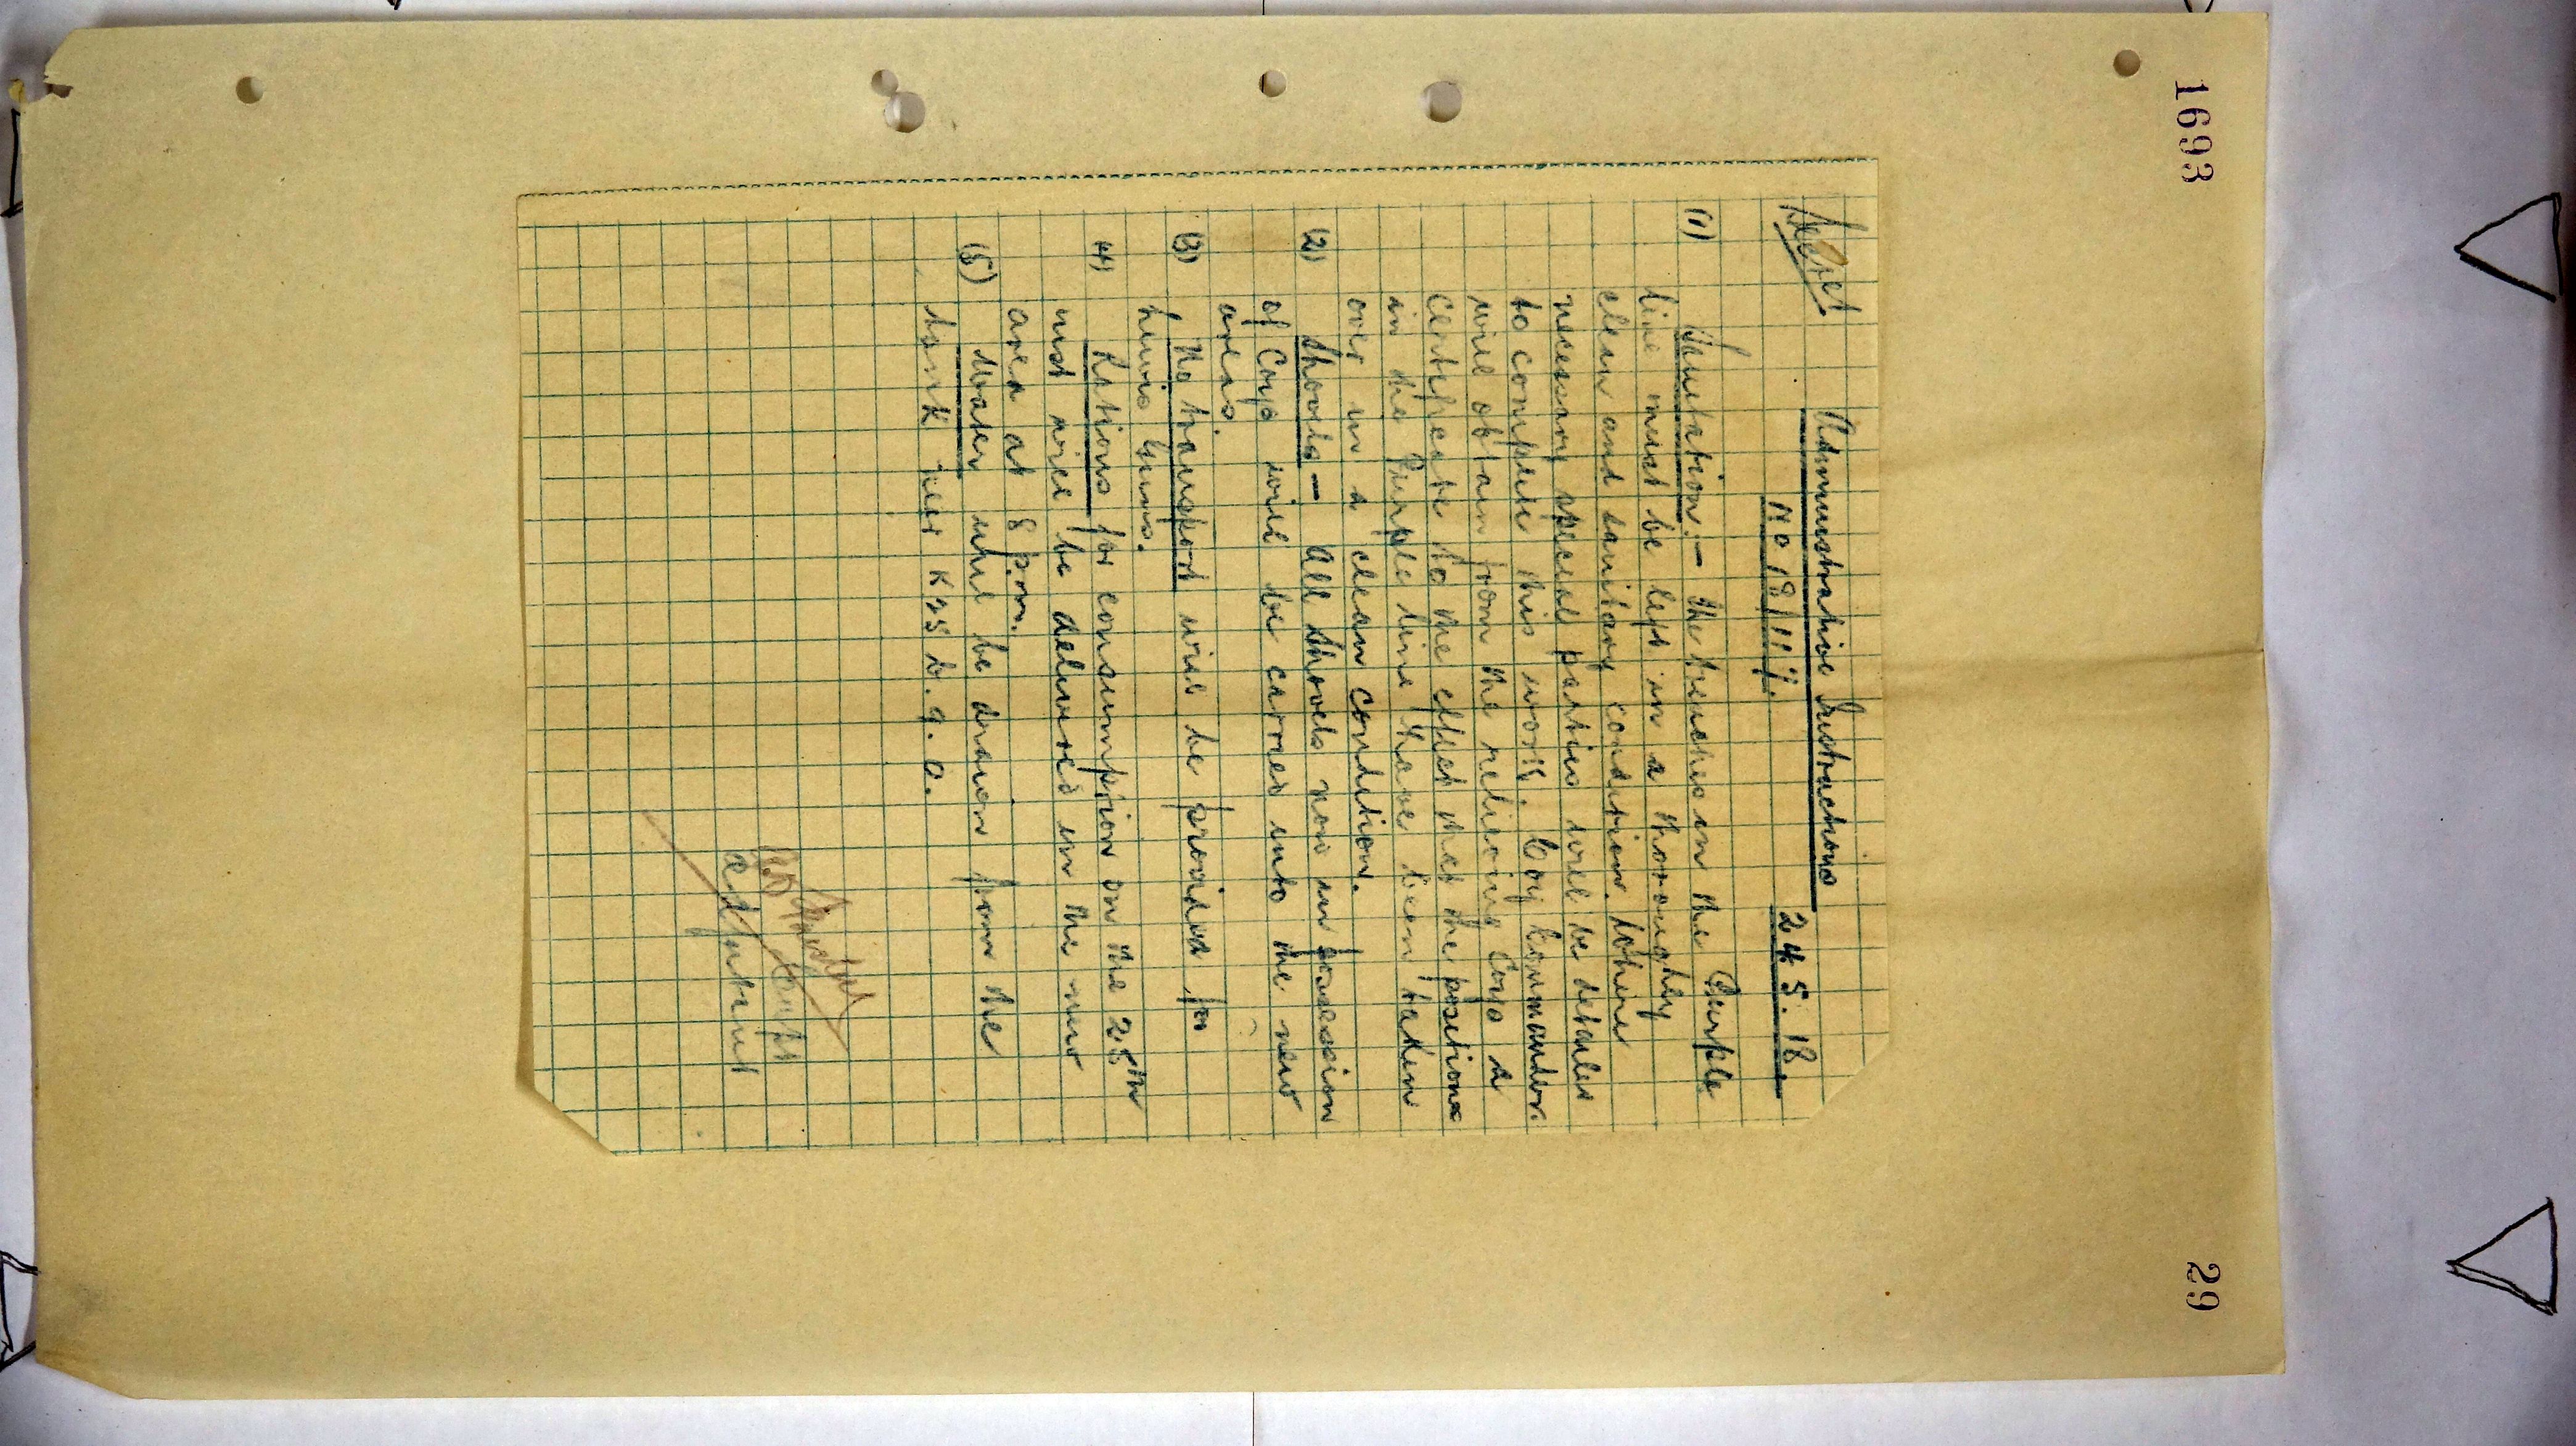 1693
29
Secret
Administrative Instructions
No 18/117.
24.5.18.
(1) Sanitation:- The trenches in the Purple
line must be left in a thoroughly
clean and sanitary condition. Where
necessary special parties will be detailed
to complete this work. Coy Commanders
will obtain from the relieving Coys a
Certificate to the effect that the positions
in the Purple line have been taken
over in a clean condition.
(2) Shovels - All shovels now in possession
of Coys will be carried into the new
area.
(3) No transport will be provided for
Lewis Guns.
(4) Rations for consumption on the 25th
inst will be delivered in the new
area at 8 p.m.
(5) Water will be drawn from the
tank near K35 b.9.0.
Capt
Adjutant